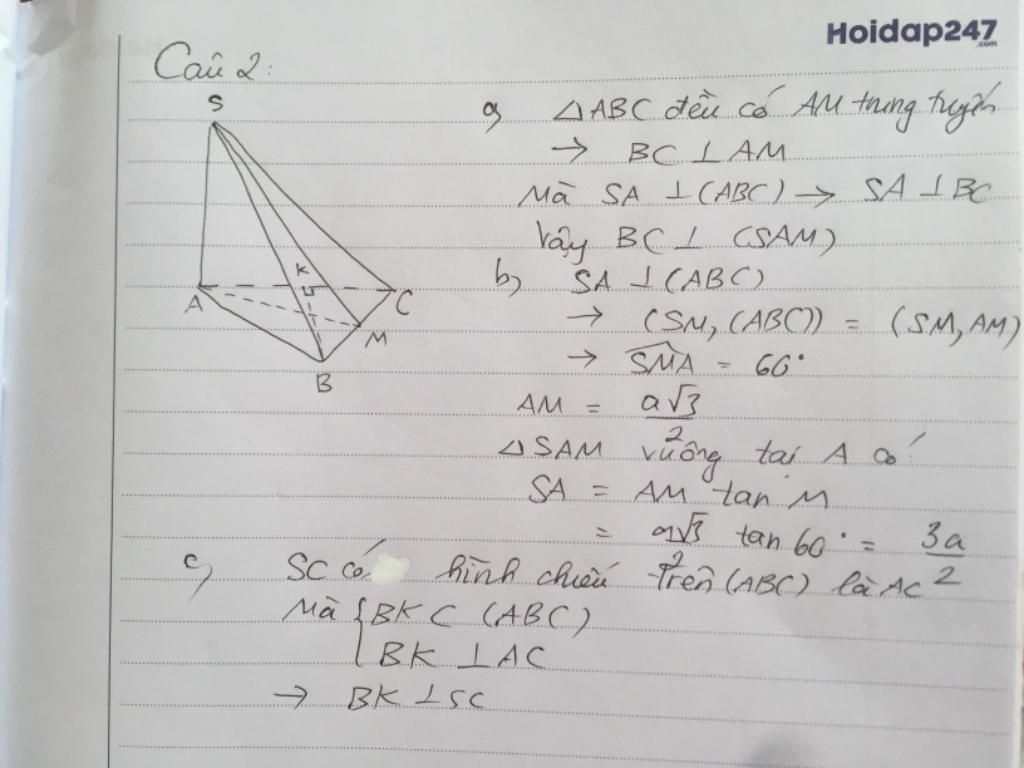 Hoidap247
.com
Câu 2:
S
K
A
C
M
B
a, △ABC đều có AM trung tuyến
→ BC ⊥ AM
Mà SA ⊥ (ABC) → SA ⊥ BC
Vậy BC ⊥ (SAM)
b, SA ⊥ (ABC)
→ (SM, (ABC)) = (SM, AM)
→ \widehat{SMA} = 60°
AM = \frac{a√3}{2}
△SAM vuông tại A có:
SA = AM tan M
= \frac{a√3}{2} tan 60° = \frac{3a}{2}
c, SC có hình chiếu trên (ABC) là AC
Mà { BK ⊂ (ABC)
BK ⊥ AC
→ BK ⊥ SC